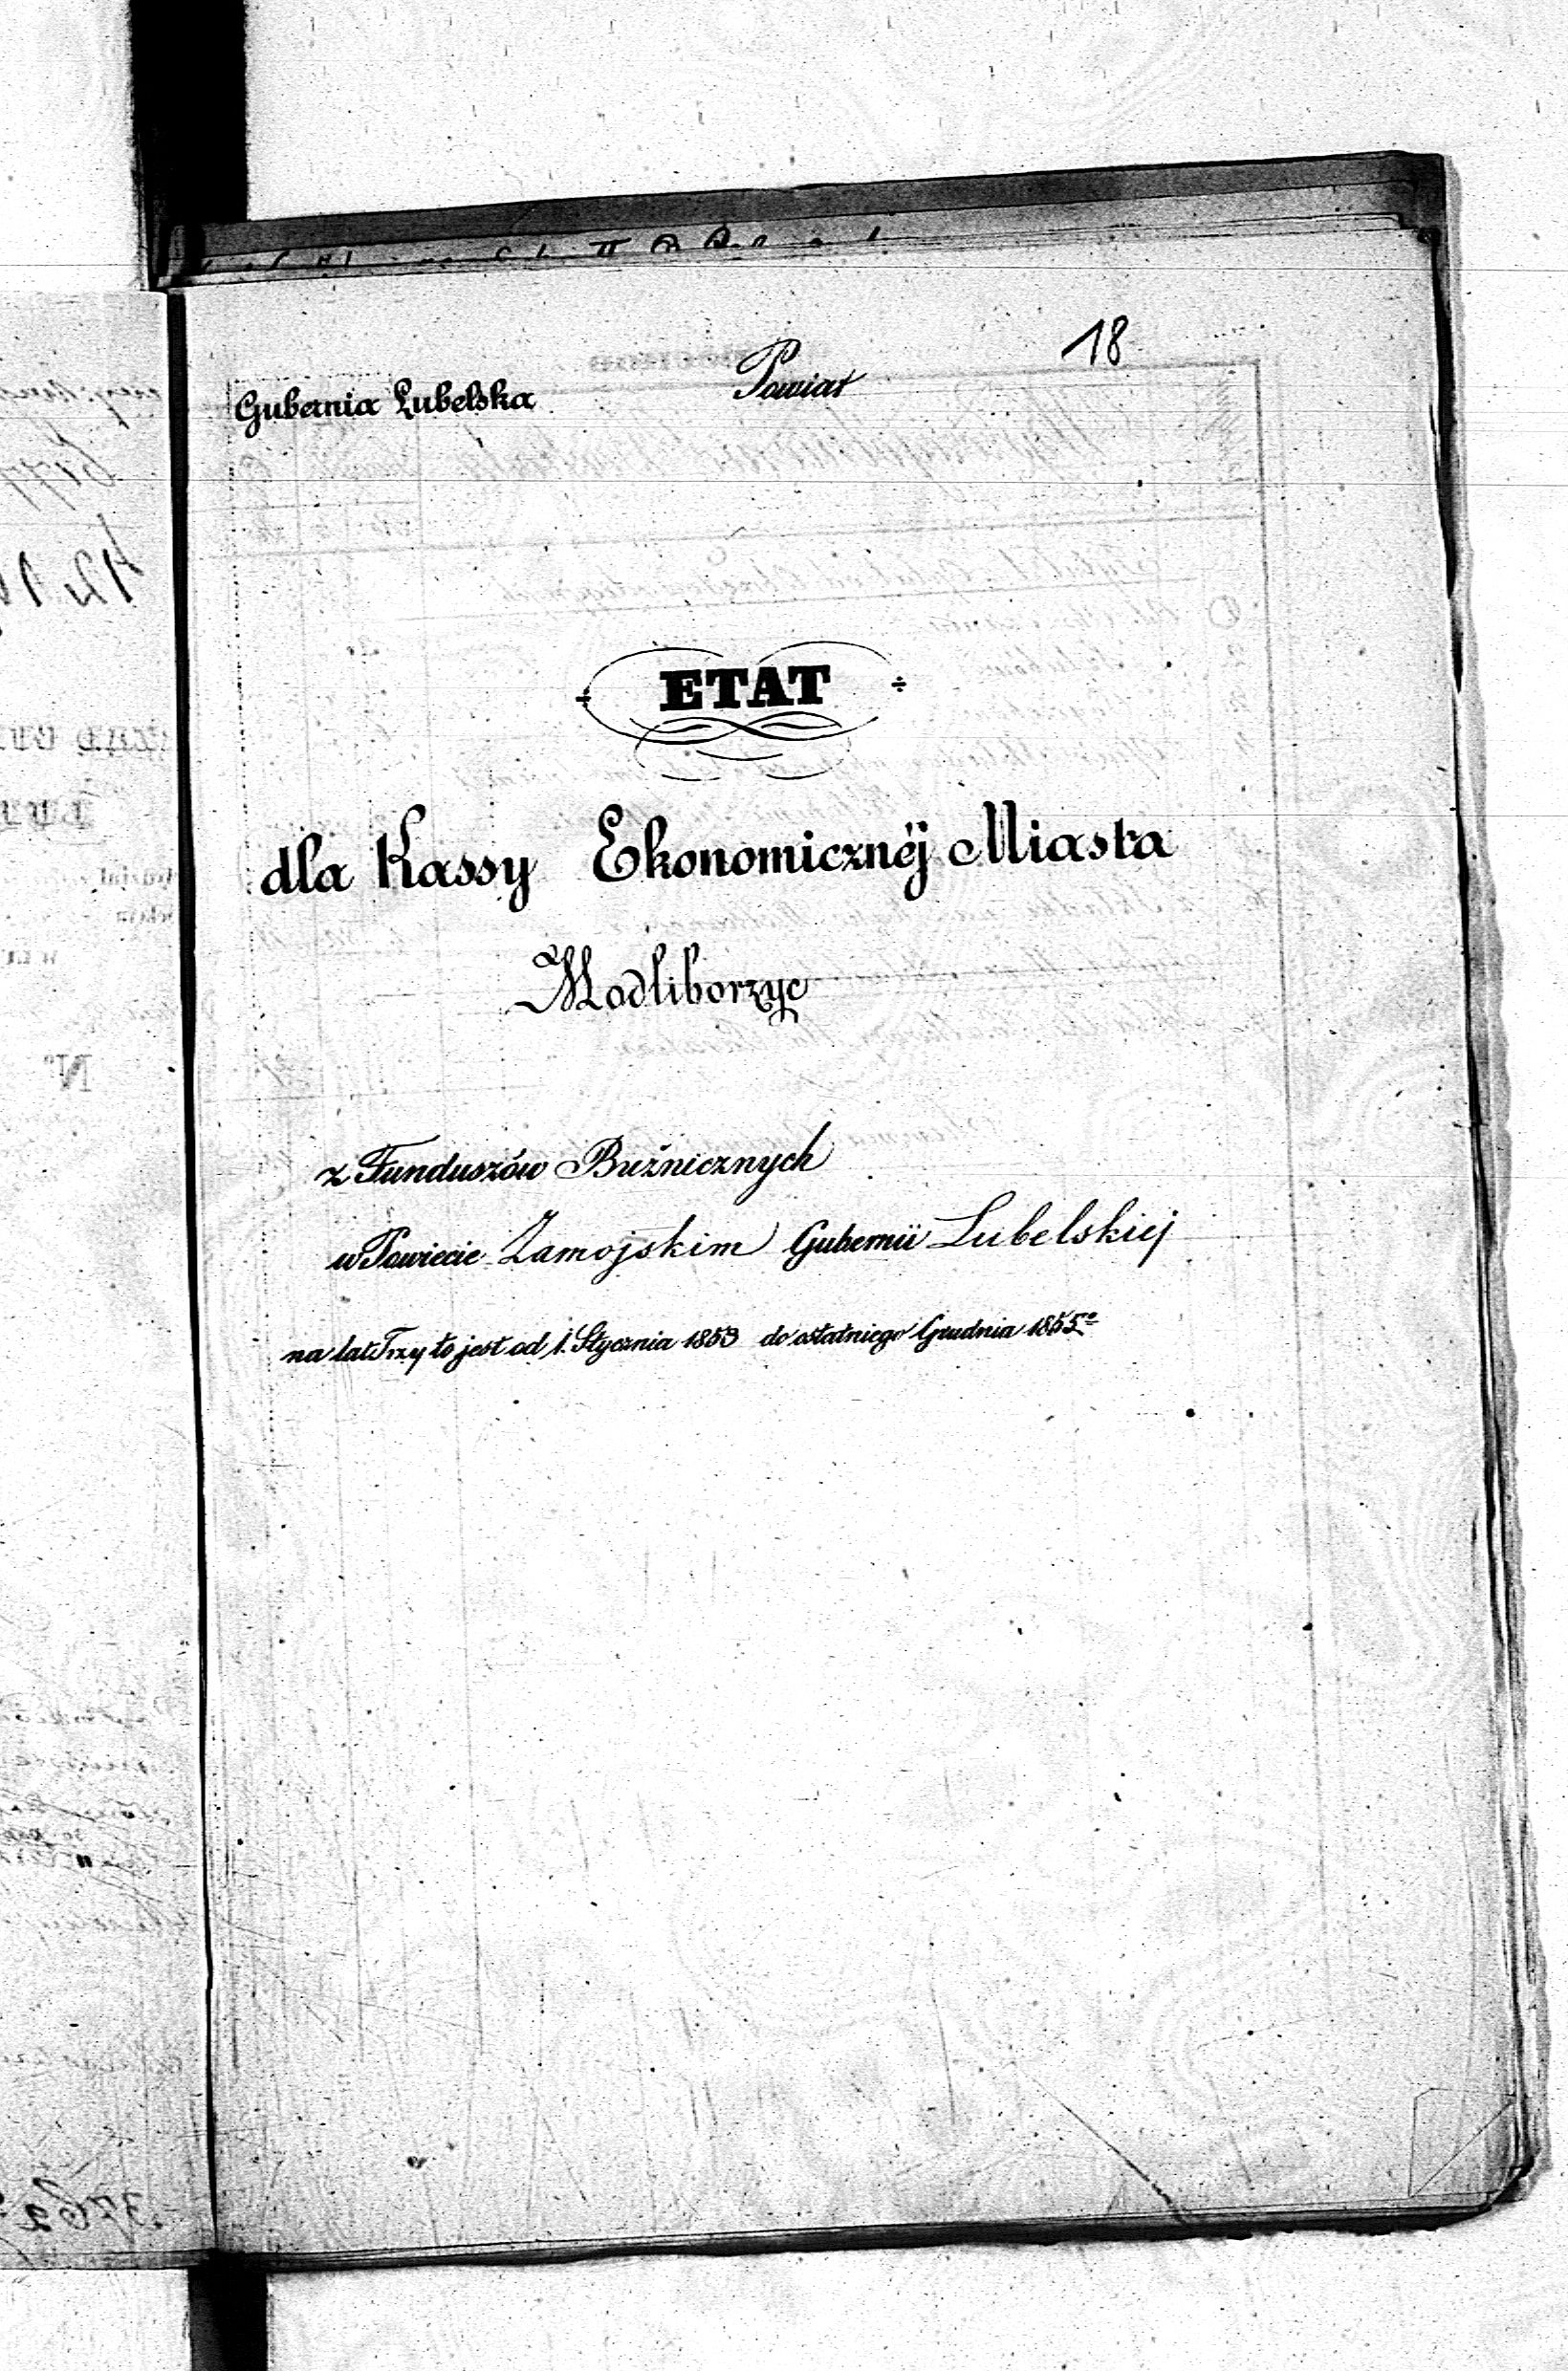 18
Gubernia Lubelska Powiat
ETAT
dla Kassy Ekonomicznéj Miasta
Modliborzyc
z Funduszów Bużnicznych
w Powiecie Zamojskim Gubernii Lubelskiej
na lat Trzy to jest od 1. Stycznia 1853 do ostatniego Grudnia 1855º